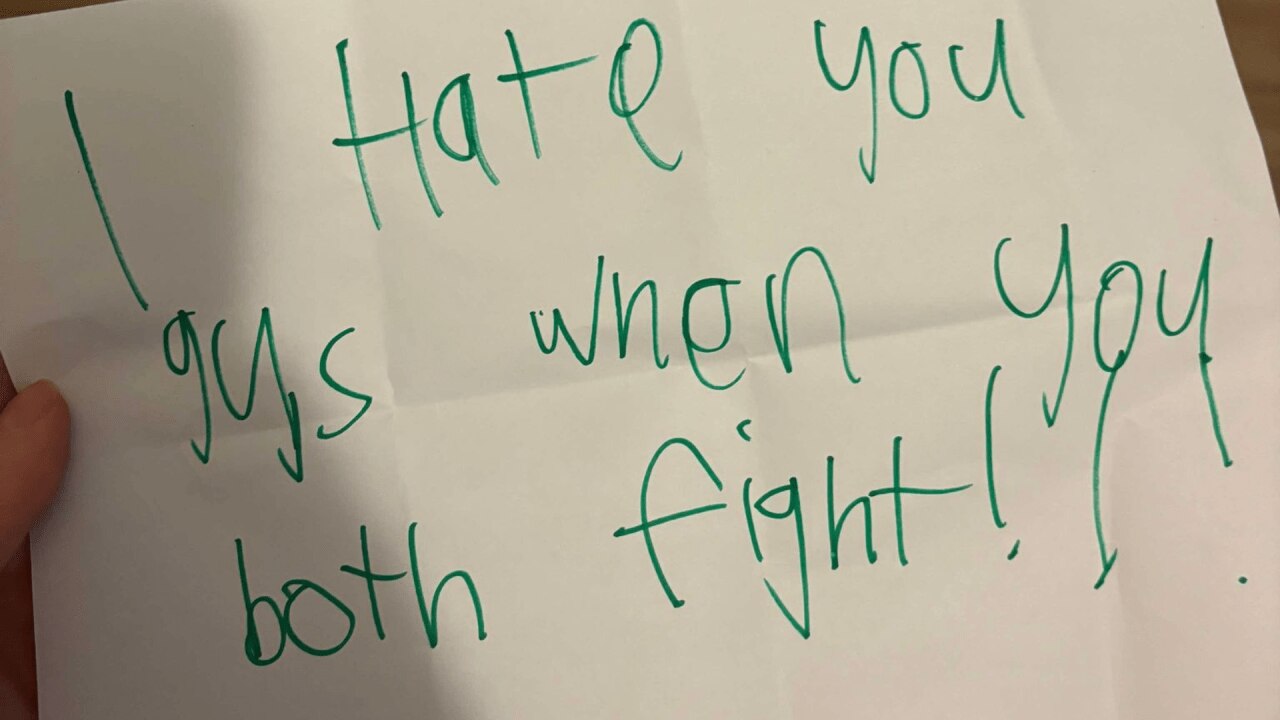 I Hate you
gys when you
both fight!